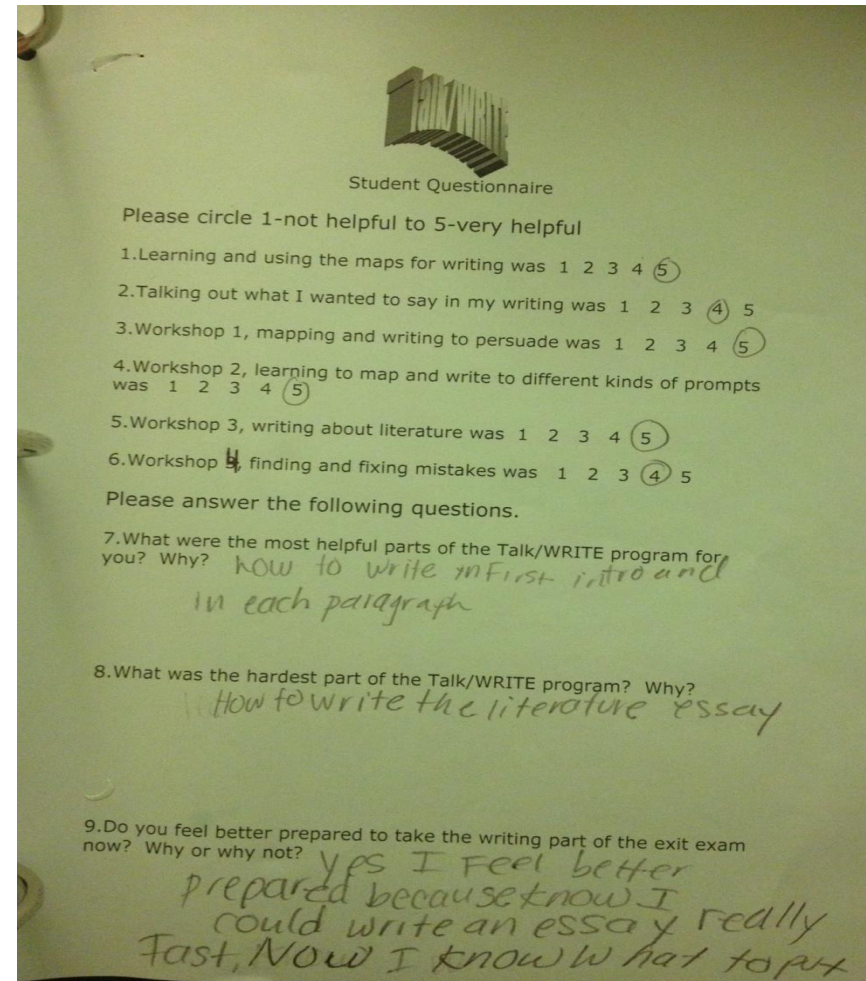 Talk/WRITE
Student Questionnaire
Please circle 1-not helpful to 5-very helpful
1.Learning and using the maps for writing was 1 2 3 4 5
2.Talking out what I wanted to say in my writing was 1 2 3 4 5
3.Workshop 1, mapping and writing to persuade was 1 2 3 4 5
4.Workshop 2, learning to map and write to different kinds of prompts
was 1 2 3 4 5
5.Workshop 3, writing about literature was 1 2 3 4 5
6.Workshop 4, finding and fixing mistakes was 1 2 3 4 5
Please answer the following questions.
7.What were the most helpful parts of the Talk/WRITE program for
you? Why? how to write in First intro and
in each paragraph
8.What was the hardest part of the Talk/WRITE program? Why?
How to write the literature essay
9.Do you feel better prepared to take the writing part of the exit exam
now? Why or why not? yes I Feel better
prepared because know I
could write an essay really
Fast, Now I know what to put